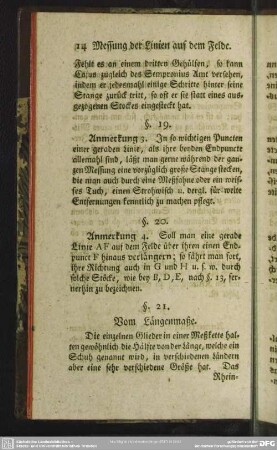 14 Messung der Linien auf dem Felde.
Fehlt es an einem dritten Gehülfen, so kann
Cajus zugleich des Sempronius Amt versehen,
indem er jedesmahl einige Schritte hinter seine
Stange zurück tritt, so oft er sie statt eines aus-
gezogenen Stockes eingesteckt hat.
§. 19.
Anmerkung 3. In so wichtigen Puncten
einer geraden Linie, als ihre beyden Endpuncte
allemahl sind, läßt man gerne während der gan-
zen Messung eine vorzüglich große Stange stecken,
die man auch durch eine Meßfahne oder ein weis-
ses Tuch, einen Strohwisch u. dergl. für weite
Entfernungen kenntlich zu machen pflegt.
§. 20.
Anmerkung 4. Soll man eine gerade
Linie AF auf dem Felde über ihren einen End-
punct F hinaus verlängern; so fährt man fort,
ihre Richtung auch in G und H u. s. w. durch
solche Stöcke, wie bey B, D, E, nach §. 13, fer-
nerhin zu bezeichnen.
§. 21.
Vom Längenmaße.
Die einzelnen Glieder in einer Meßkette hal-
ten gewöhnlich die Hälfte von der Länge, welche ein
Schuh genannt wird, in verschiedenen Ländern
aber eine sehr verschiedene Größe hat. Das
Rhein-